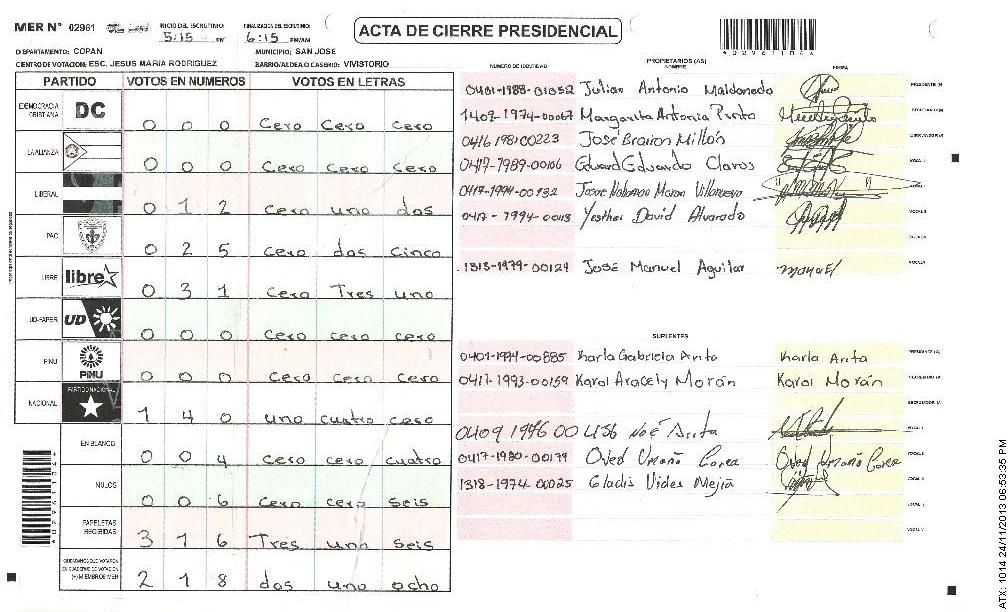 MER N° 02961
INICIO DEL ESCRUTINIO:
5:15 PM
FINALIZACION DEL ESCRUTINIO:
6:15 PM/AM
ACTA DE CIERRE PRESIDENCIAL
DEPARTAMENTO: COPAN
MUNICIPIO: SAN JOSE
CENTRO DE VOTACION: ESC. JESUS MARIA RODRIGUEZ
BARRIO/ALDEA O CASERIO: VIVISTORIO
PARTIDO VOTOS EN NUMEROS VOTOS EN LETRAS
DEMOCRACIA CRISTIANA DC 0 0 0 Cero Cero Cero
LA ALIANZA 0 0 0 Cero Cero Cero
LIBERAL 0 1 2 Cero uno dos
PAC 0 2 5 Cero dos Cinco
LIBRE libre 0 3 1 Cero Tres uno
UD-FAPER UD 0 0 0 Cero Cero Cero
PINU PINU 0 0 0 Cero Cero Cero
NACIONAL PARTIDO NACIONAL 1 4 0 uno cuatro cero
EN BLANCO 0 0 4 cero cero cuatro
NULOS 0 0 6 cero cero seis
PAPELETAS RECIBIDAS 3 1 6 Tres uno seis
CIUDADANOS QUE VOTARON EN CUADERNO DE VOTACION (+) MIEMBROS MER 2 1 8 dos uno ocho
NUMERO DE IDENTIDAD
PROPIETARIOS (AS)
NOMBRE
FIRMA
0401-1988-01052 Julian Antonio Maldonado PRESIDENTE (A)
1402-1974-00067 Margarita Antonia SECRETARIO (A)
0416 1981 00223 José Brairon Millón
0417-1989-00106 Edward Eduardo Claros
0417-1994-00132
0417-1994-00113 David Alvarado
1313-1979-00129 José Manuel Aguilar manuel
SUPLENTES
0401-1994-00885 Karla Gabriela Arita Karla Arita PRESIDENTE (A)
0417-1993-00159 Karol Aracely Morán Karol Morán SECRETARIO (A)
ESCRUTADOR (A)
0409 1976 00 Noé Arita
0417-1980-00179 Oved Umaña Corea Oved Umaña Corea
1318-1974-00025 Gladis Vides Mejia
*029611046*
ATX: 1014 24/11/2013 06:53:35 PM